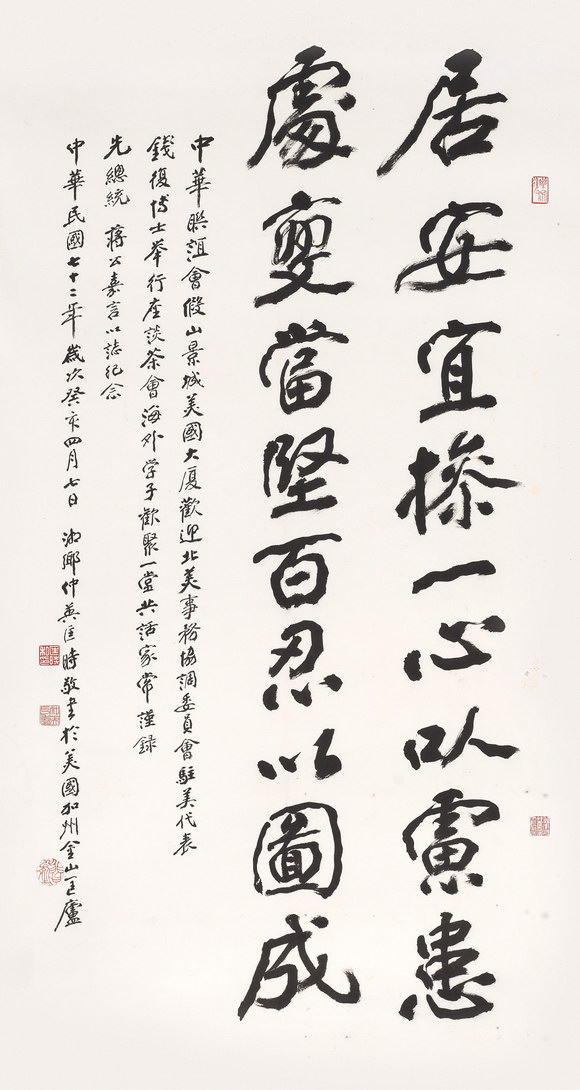 居安宜操一心以慮患
處變當堅百忍以圖成
中華聯誼會假山景城美國大廈歡迎北美事務協調委員會駐美代表
錢復博士舉行座談茶會海外学子歡聚一堂共話家常謹録
先總統 蔣公嘉言以誌紀念
中華民國七十二年歲次癸亥四月七日 湘鄉仲英匡時敬書於美國加州金山匡廬